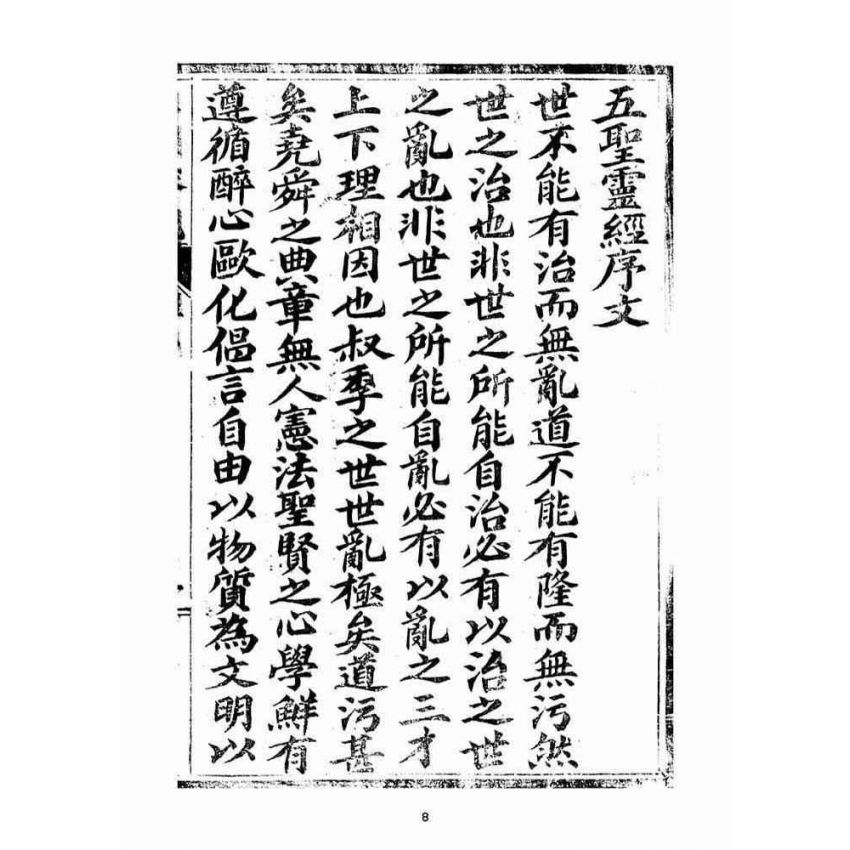 五聖靈經序文
世不能有治而無亂道不能有隆而無污然
世之治也非世之所能自治必有以治之世
之亂也非世之所能自亂必有以亂之三才
上下理相因也叔季之世世亂極矣道污甚
矣堯舜之典章無人憲法聖賢之心學鮮有
遵循醉心歐化倡言自由以物質為文明以
8